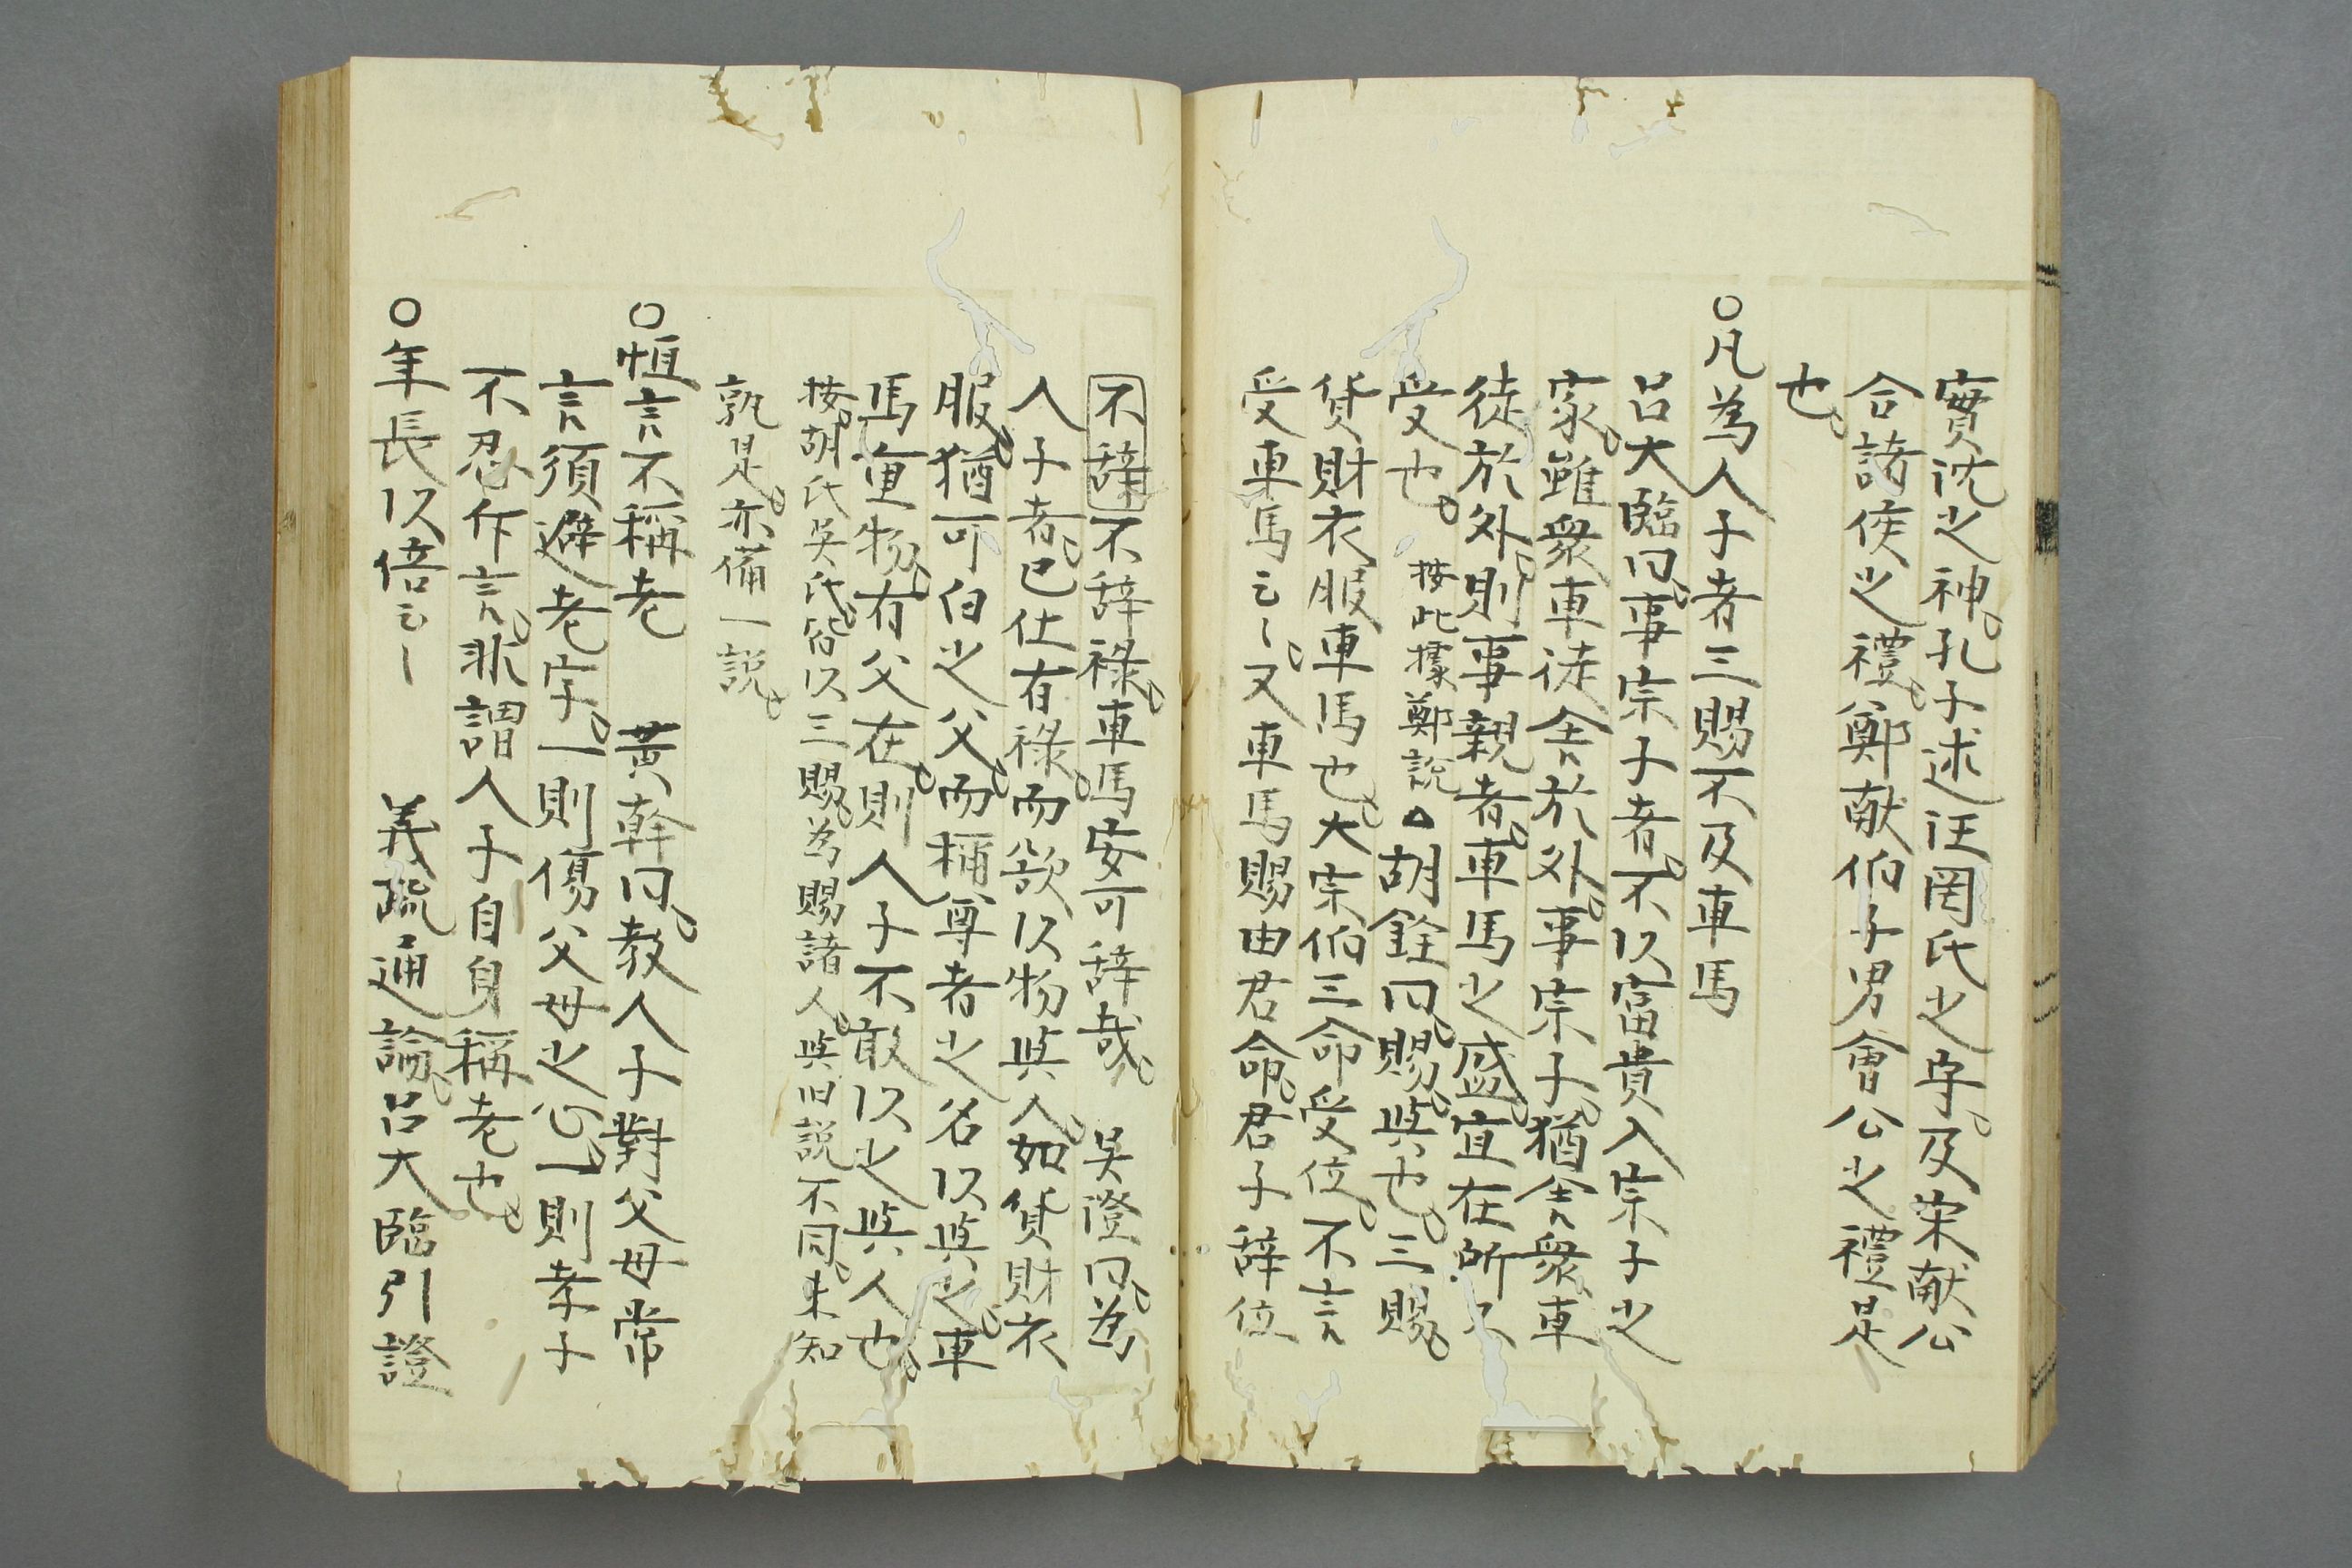 實沈之神孔子述汪罔氏之守及宋献公
合諸侯之禮鄭献伯子男會公之禮是
也
○凡為人子者三賜不及車馬
呂大臨曰事宗子者不以富貴入宗子之
家雖衆車徒舍於外事宗子猶舍衆車
徒於外則事親者車馬之盛宜在所不
受也按此據鄭説△胡銓曰賜與也三賜
貨財衣服車馬也大宗伯三命受位不言
受車馬云〻又車馬賜由君命君子辞位
不辞不辞禄車馬安可辞哉 吳澄曰為
人子者已仕有禄而欲以物與人如貨財衣
服猶可白之父而稱尊者之名以與之車
馬重物有父在則人子不敢以之與人也
按胡氏吳氏皆以三賜為賜諸人與旧説不同未知
孰是亦備一説
○恒言不稱老 黃幹曰教人子對父母常
言須避老字一則傷父母之心一則孝子
不忍斥言非謂人子自身稱老也
○年長以倍云〻 義疏通論呂大臨引證